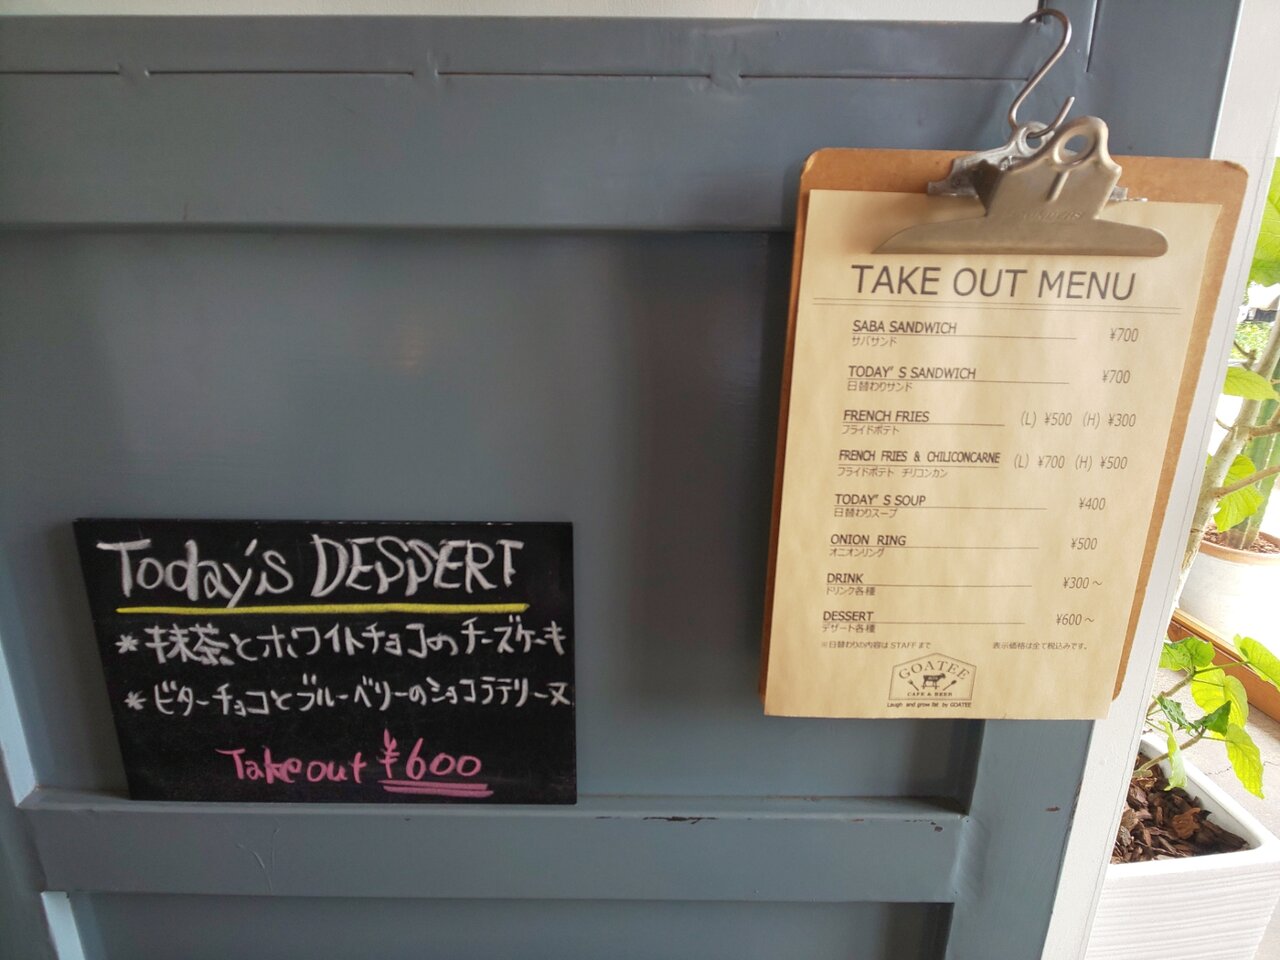 Today's DESSERT
* 抹茶とホワイトチョコのチーズケーキ
* ビターチョコとブルーベリーのショコラテリーヌ
Take out ¥600
TAKE OUT MENU
SABA SANDWICH ¥700
サバサンド
TODAY'S SANDWICH ¥700
日替わりサンド
FRENCH FRIES (L) ¥500 (H) ¥300
フライドポテト
FRENCH FRIES & CHILICONCARNE (L) ¥700 (H) ¥500
フライドポテト チリコンカン
TODAY'S SOUP ¥400
日替わりスープ
ONION RING ¥500
オニオンリング
DRINK ¥300～
ドリンク各種
DESSERT ¥600～
デザート各種
※日替わりの内容は STAFF まで 表示価格は全て税込みです。
GOATEE
CAFE & BEER
Laugh and grow fat by GOATEE